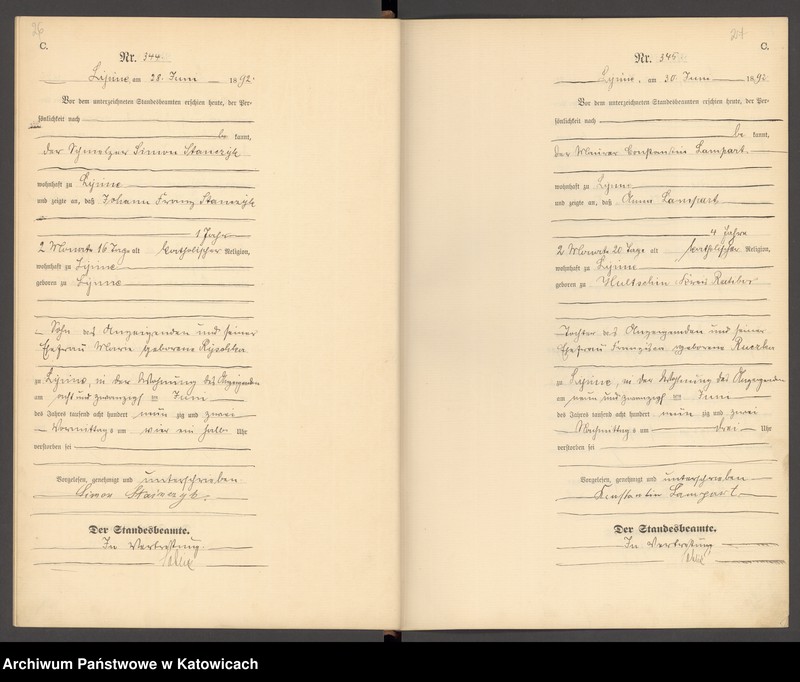 26
C.
Nr. 344.
Lipine am 28. Juni 1892.
Vor dem unterzeichneten Standesbeamten erschien heute, der Per-
sönlichkeit nach
be kannt,
der Schmelzer Simon Stanczyk
wohnhaft zu Lipine
und zeigte an, daß Johann Franz Stanczyk
1 Jahr
2 Monate 16 Tage alt katholischer Religion,
wohnhaft zu Lipine
geboren zu Lipine
Sohn des Anzeigenden und seiner
Ehefrau Marie geborene
zu Lipine, in der Wohnung des Anzeigenden
am acht und zwanzigsten Juni
des Jahres tausend acht hundert neun zig und zwei
Vormittags um vier ein halb Uhr
verstorben sei
Vorgelesen, genehmigt und unterschrieben
Simon Stanczyk.
Der Standesbeamte.
In Vertretung
27
C.
Nr. 345.
Lipine, am 30. Juni 1892
Vor dem unterzeichneten Standesbeamten erschien heute, der Per-
sönlichkeit nach
be kannt,
der Maurer Constantin Lampart
wohnhaft zu Lipine
und zeigte an, daß Anna Lampart
4 Jahre
2 Monate 20 Tage alt katholischer Religion,
wohnhaft zu Lipine
geboren zu Hultschin Kreis Ratibor
Tochter des Anzeigenden und seiner
Ehefrau Franziska geborene Ruczka
zu Lipine, in der Wohnung des Anzeigenden
am neun und zwanzigsten Juni
des Jahres tausend acht hundert neun zig und zwei
Nachmittags um drei Uhr
verstorben sei
Vorgelesen, genehmigt und unterschrieben
Konstantin Lampart
Der Standesbeamte.
In Vertretung
Archiwum Państwowe w Katowicach